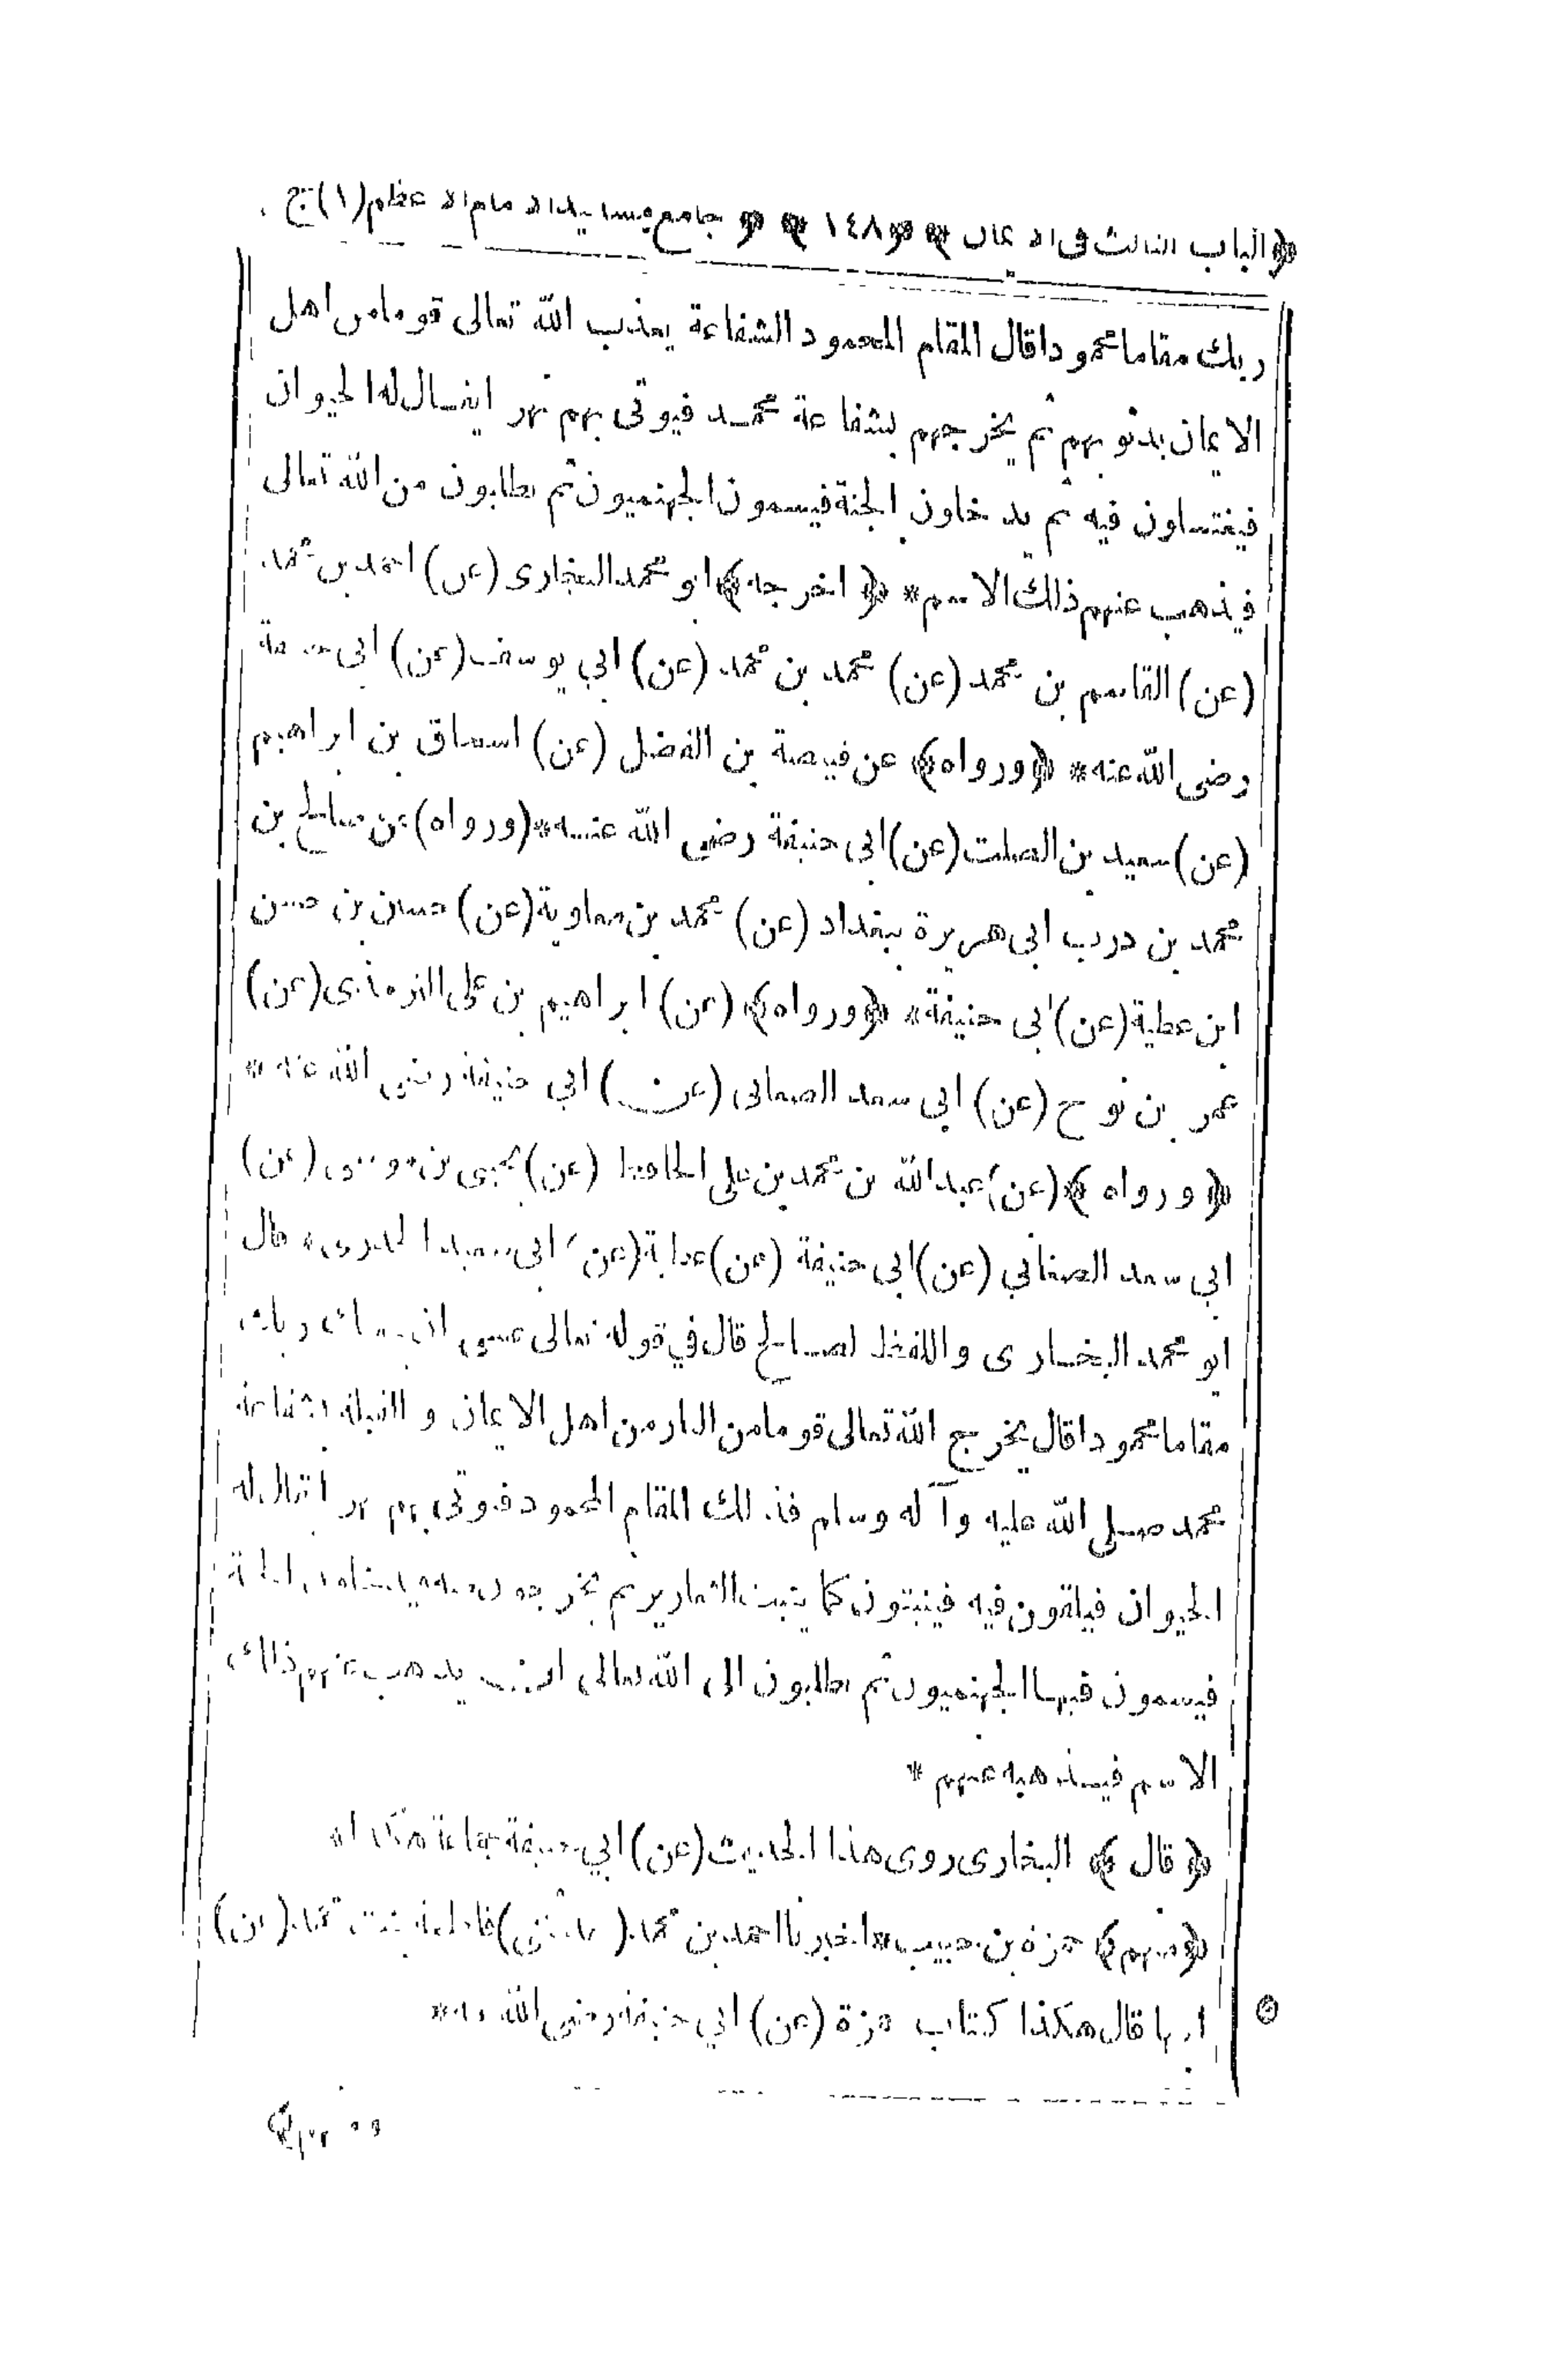 ﴿الباب الثالث فى الايمان﴾ ﴿١٤٨﴾ ﴿جامع مسانيد الامام الاعظم(١)ج﴾
ربك مقاما محمودا قال المقام المحمود الشفاعة يعذب الله تعالى قوما من اهل
الايمان بذنوبهم ثم يخرجهم بشفاعة محمد فيوتى بهم نهر ايقال له الحيوان
فيغتسلون فيه ثم يدخلون الجنة فيسمون الجهنميون ثم يطلبون من الله تعالى
فيذهب عنهم ذلك الاسم* ﴿اخرجه﴾ ابو محمد البخارى (عن) احمد بن محمد
(عن) القاسم بن محمد (عن) محمد بن محمد (عن) ابي يوسف (عن) ابى حنيفة
رضى الله عنه* ﴿ورواه﴾ عن قبيصة بن الفضل (عن) اسحاق بن ابراهيم
(عن) سعيد بن الصلت (عن) ابى حنيفة رضى الله عنه* (ورواه) عن صالح بن
محمد بن درب ابى هريرة ببغداد (عن) محمد بن معاوية (عن) حسان بن حسن
ابن عطية (عن) ابى حنيفة* ﴿ورواه﴾ (عن) ابراهيم بن على الترمذى (عن)
عمر بن نوح (عن) ابى سعد الصغانى (عن) ابي حنيفة رضى الله عنه*
﴿ورواه﴾ (عن) عبدالله بن محمد بن على الحافظ (عن) يحيى بن موسى (عن)
ابي سعد الصغاني (عن) ابى حنيفة (عن) عطية (عن) ابى سعيد الخدرى* قال
ابو محمد البخارى واللفظ لصالح قال في قوله تعالى عسى ان يبعثك ربك
مقاما محمودا قال يخرج الله تعالى قوما من النار من اهل الايمان والقبلة بشفاعة
محمد صلى الله عليه وآله وسلم فذلك المقام المحمود فيوتى بهم نهر ايقال له
الحيوان فيلقون فيه فينبتون كما ينبت الثعارير ثم يخرجون منه ويدخلون الجنة
فيسمون فيها الجهنميون ثم يطلبون الى الله تعالى ان يذهب عنهم ذلك
الاسم فيذهبه عنهم*
﴿قال﴾ البخارى روى هذا الحديث (عن) ابي حنيفة جماعة هكذا*
﴿منهم﴾ حمزة بن حبيب* اخبرنا احمد بن محمد (حدثتنى) فاطمة بنت محمد (عن)
ابيها قال هكذا كتاب حمزة (عن) ابي حنيفة رضى الله عنه*